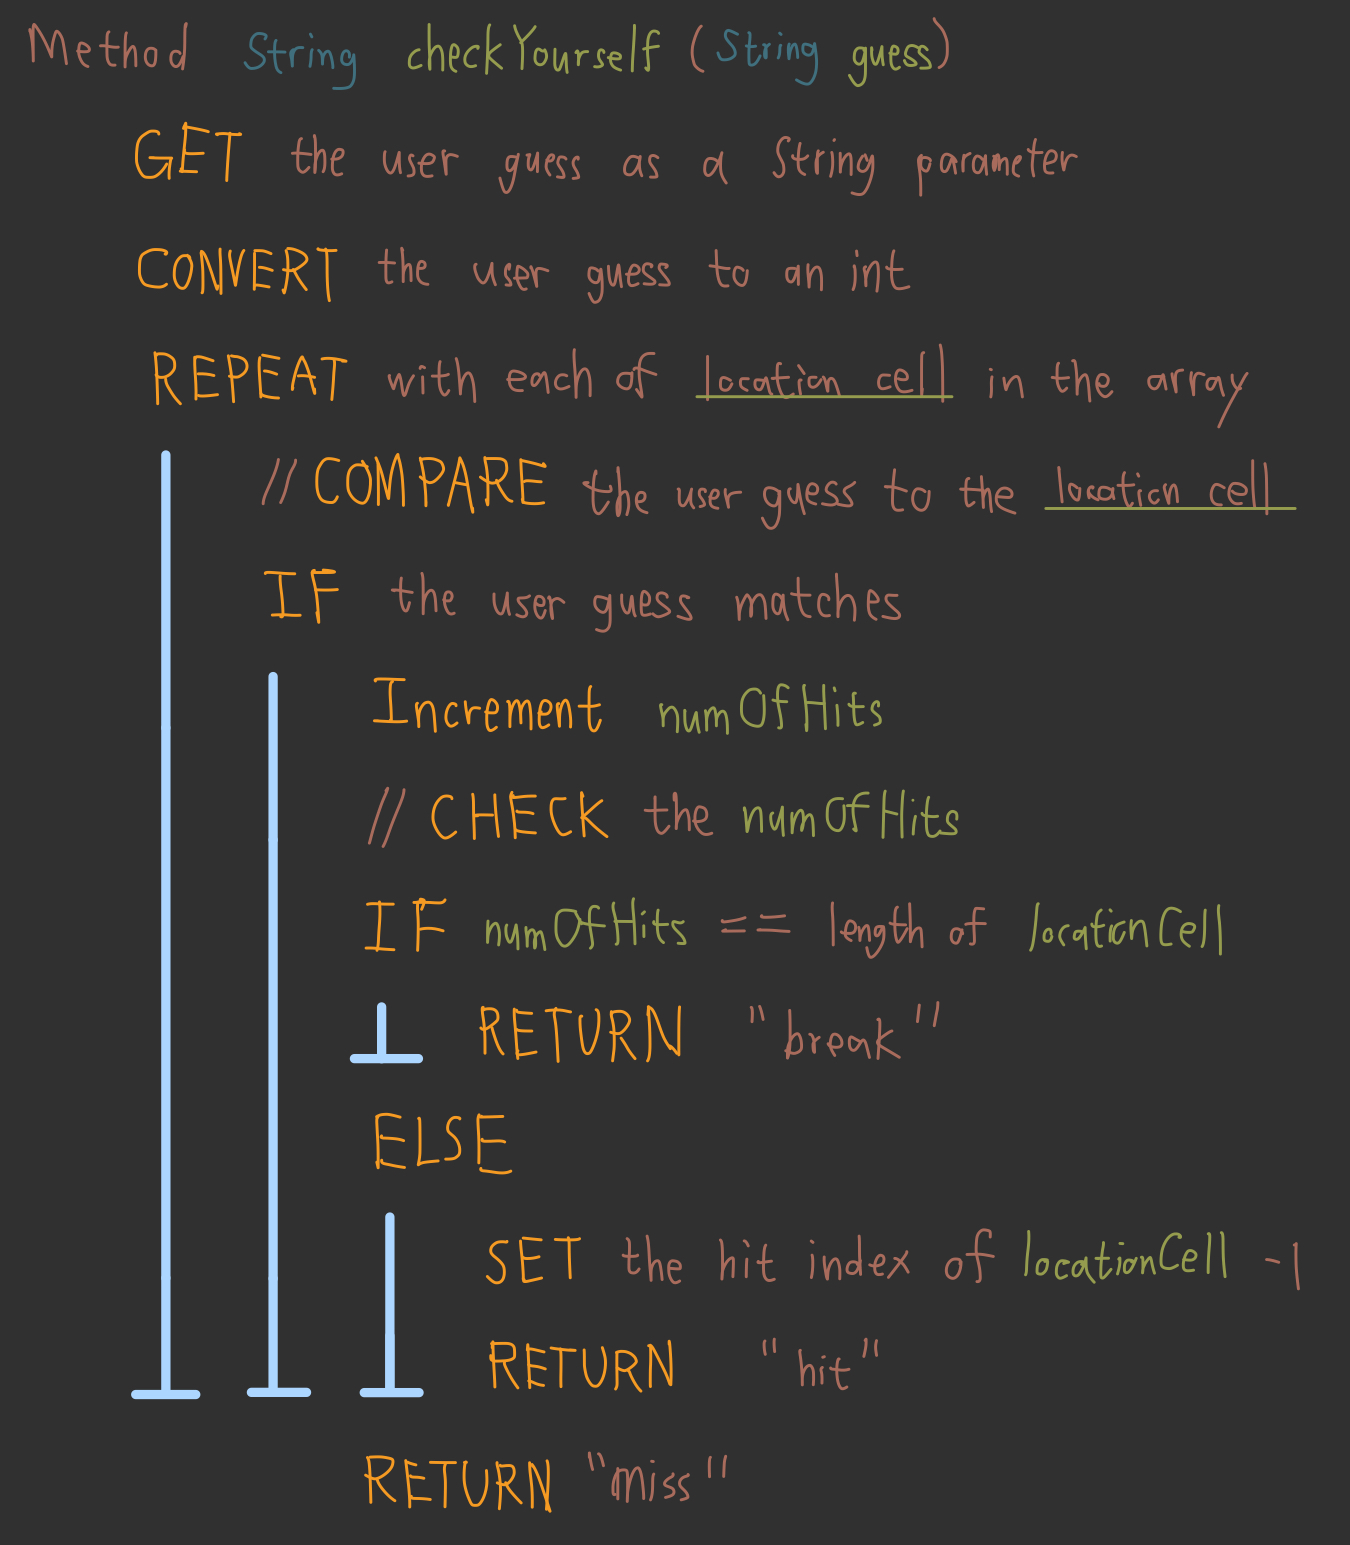 Method String checkYourself (String guess)
GET the user guess as a String parameter
CONVERT the user guess to an int
REPEAT with each of location cell in the array
// COMPARE the user guess to the location cell
IF the user guess matches
Increment numOfHits
// CHECK the numOfHits
IF numOfHits == length of locationCell
RETURN "break"
ELSE
SET the hit index of locationCell -1
RETURN "hit"
RETURN "miss"